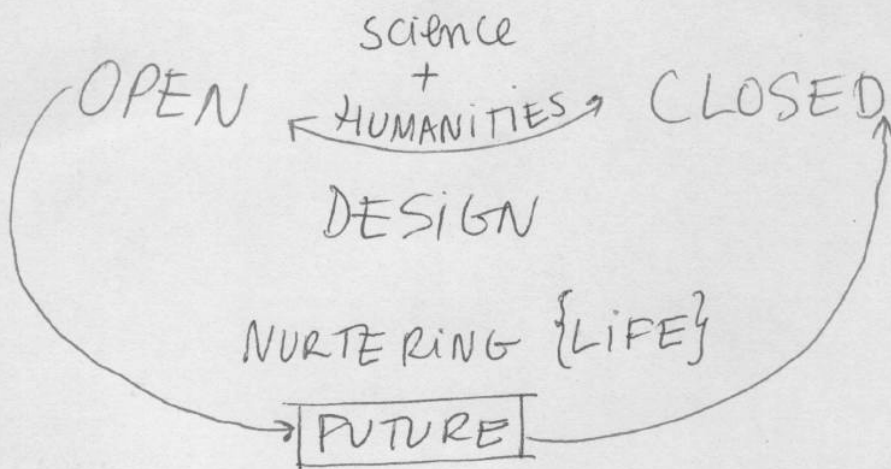 science
+
OPEN HUMANITIES CLOSED
DESIGN
NURTERING {LIFE}
FUTURE